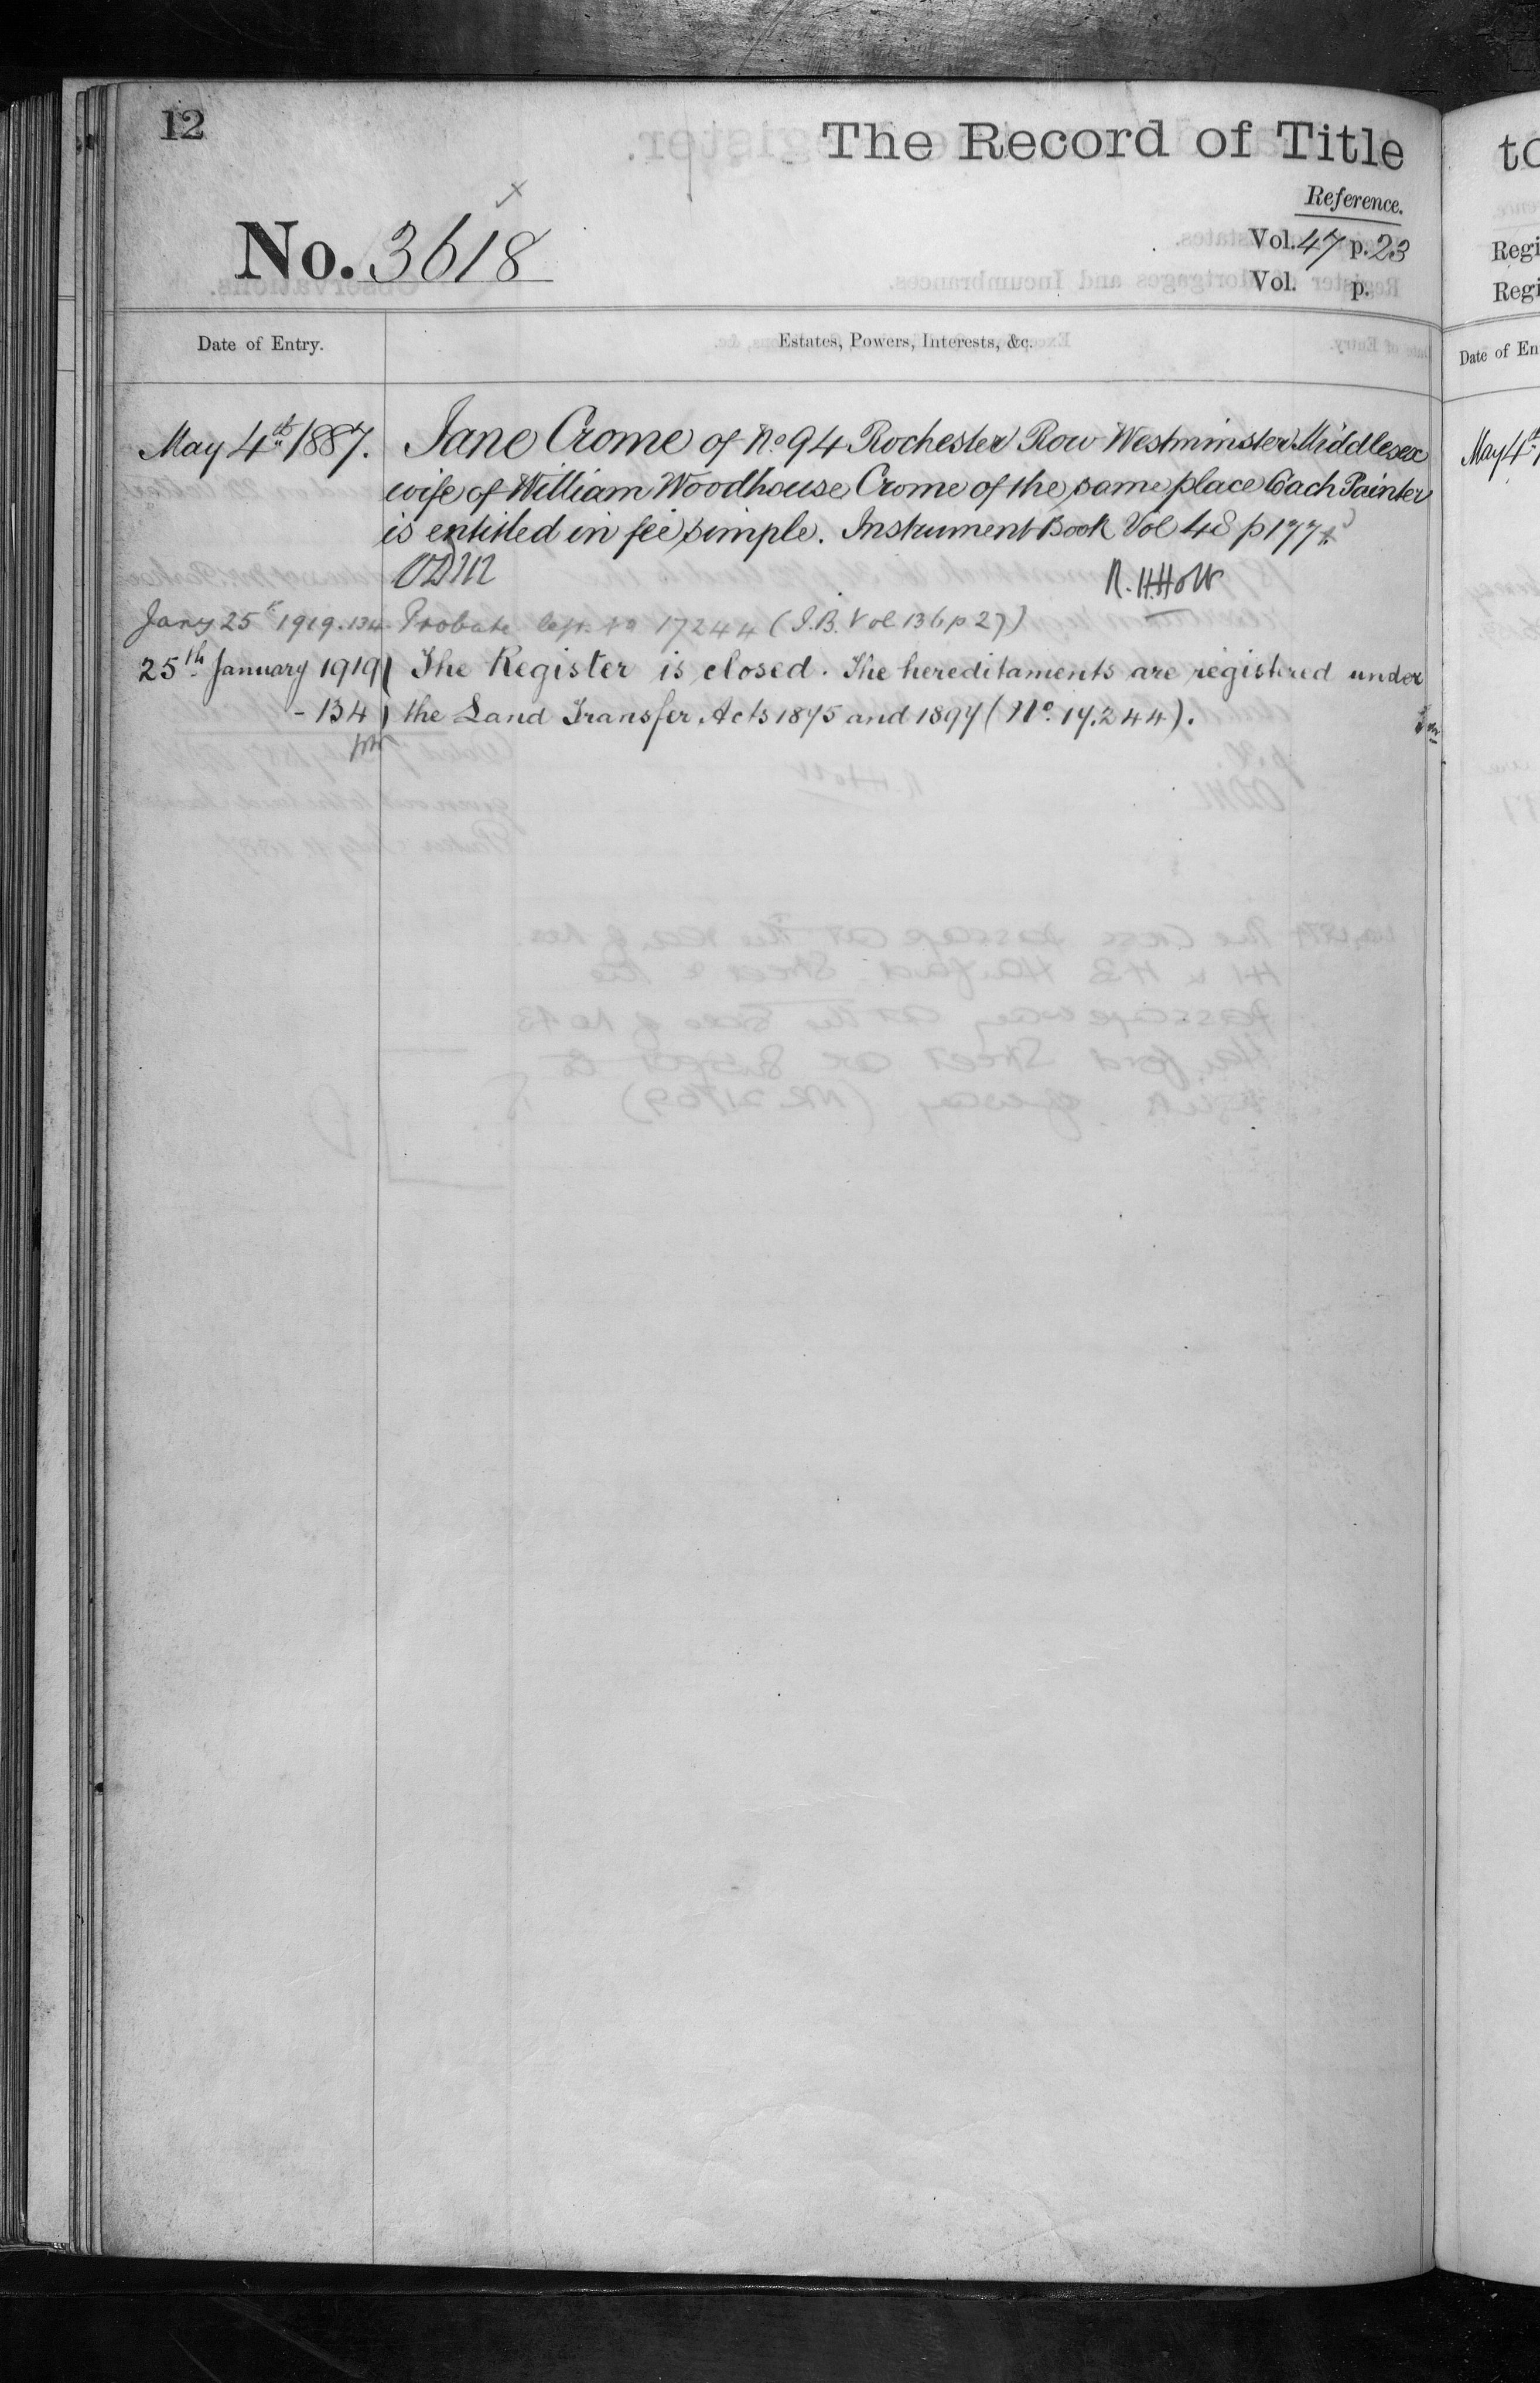 12
The Record of Title
Reference.
No. 3618
Vol. 47 p. 23
Vol. p.
Date of Entry.
Estates, Powers, Interests, &c.
May 4th 1887. Jane Crome of No 94 Rochester Row Westminster Middlesex
wife of William Woodhouse Crome of the same place Coach Painter
is entitled in fee simple. Instrument Book Vol 48 p 177
R. H. Holt
Jany 25th 1919. 134. Probate left to 17244 (I.B. Vol 136 p 27)
25th January 1919 The Register is closed. The hereditaments are registered under
- 134 the Land Transfer Acts 1875 and 1897 (No. 17.244).
to
Regi
Regi
Date of En
May 4th